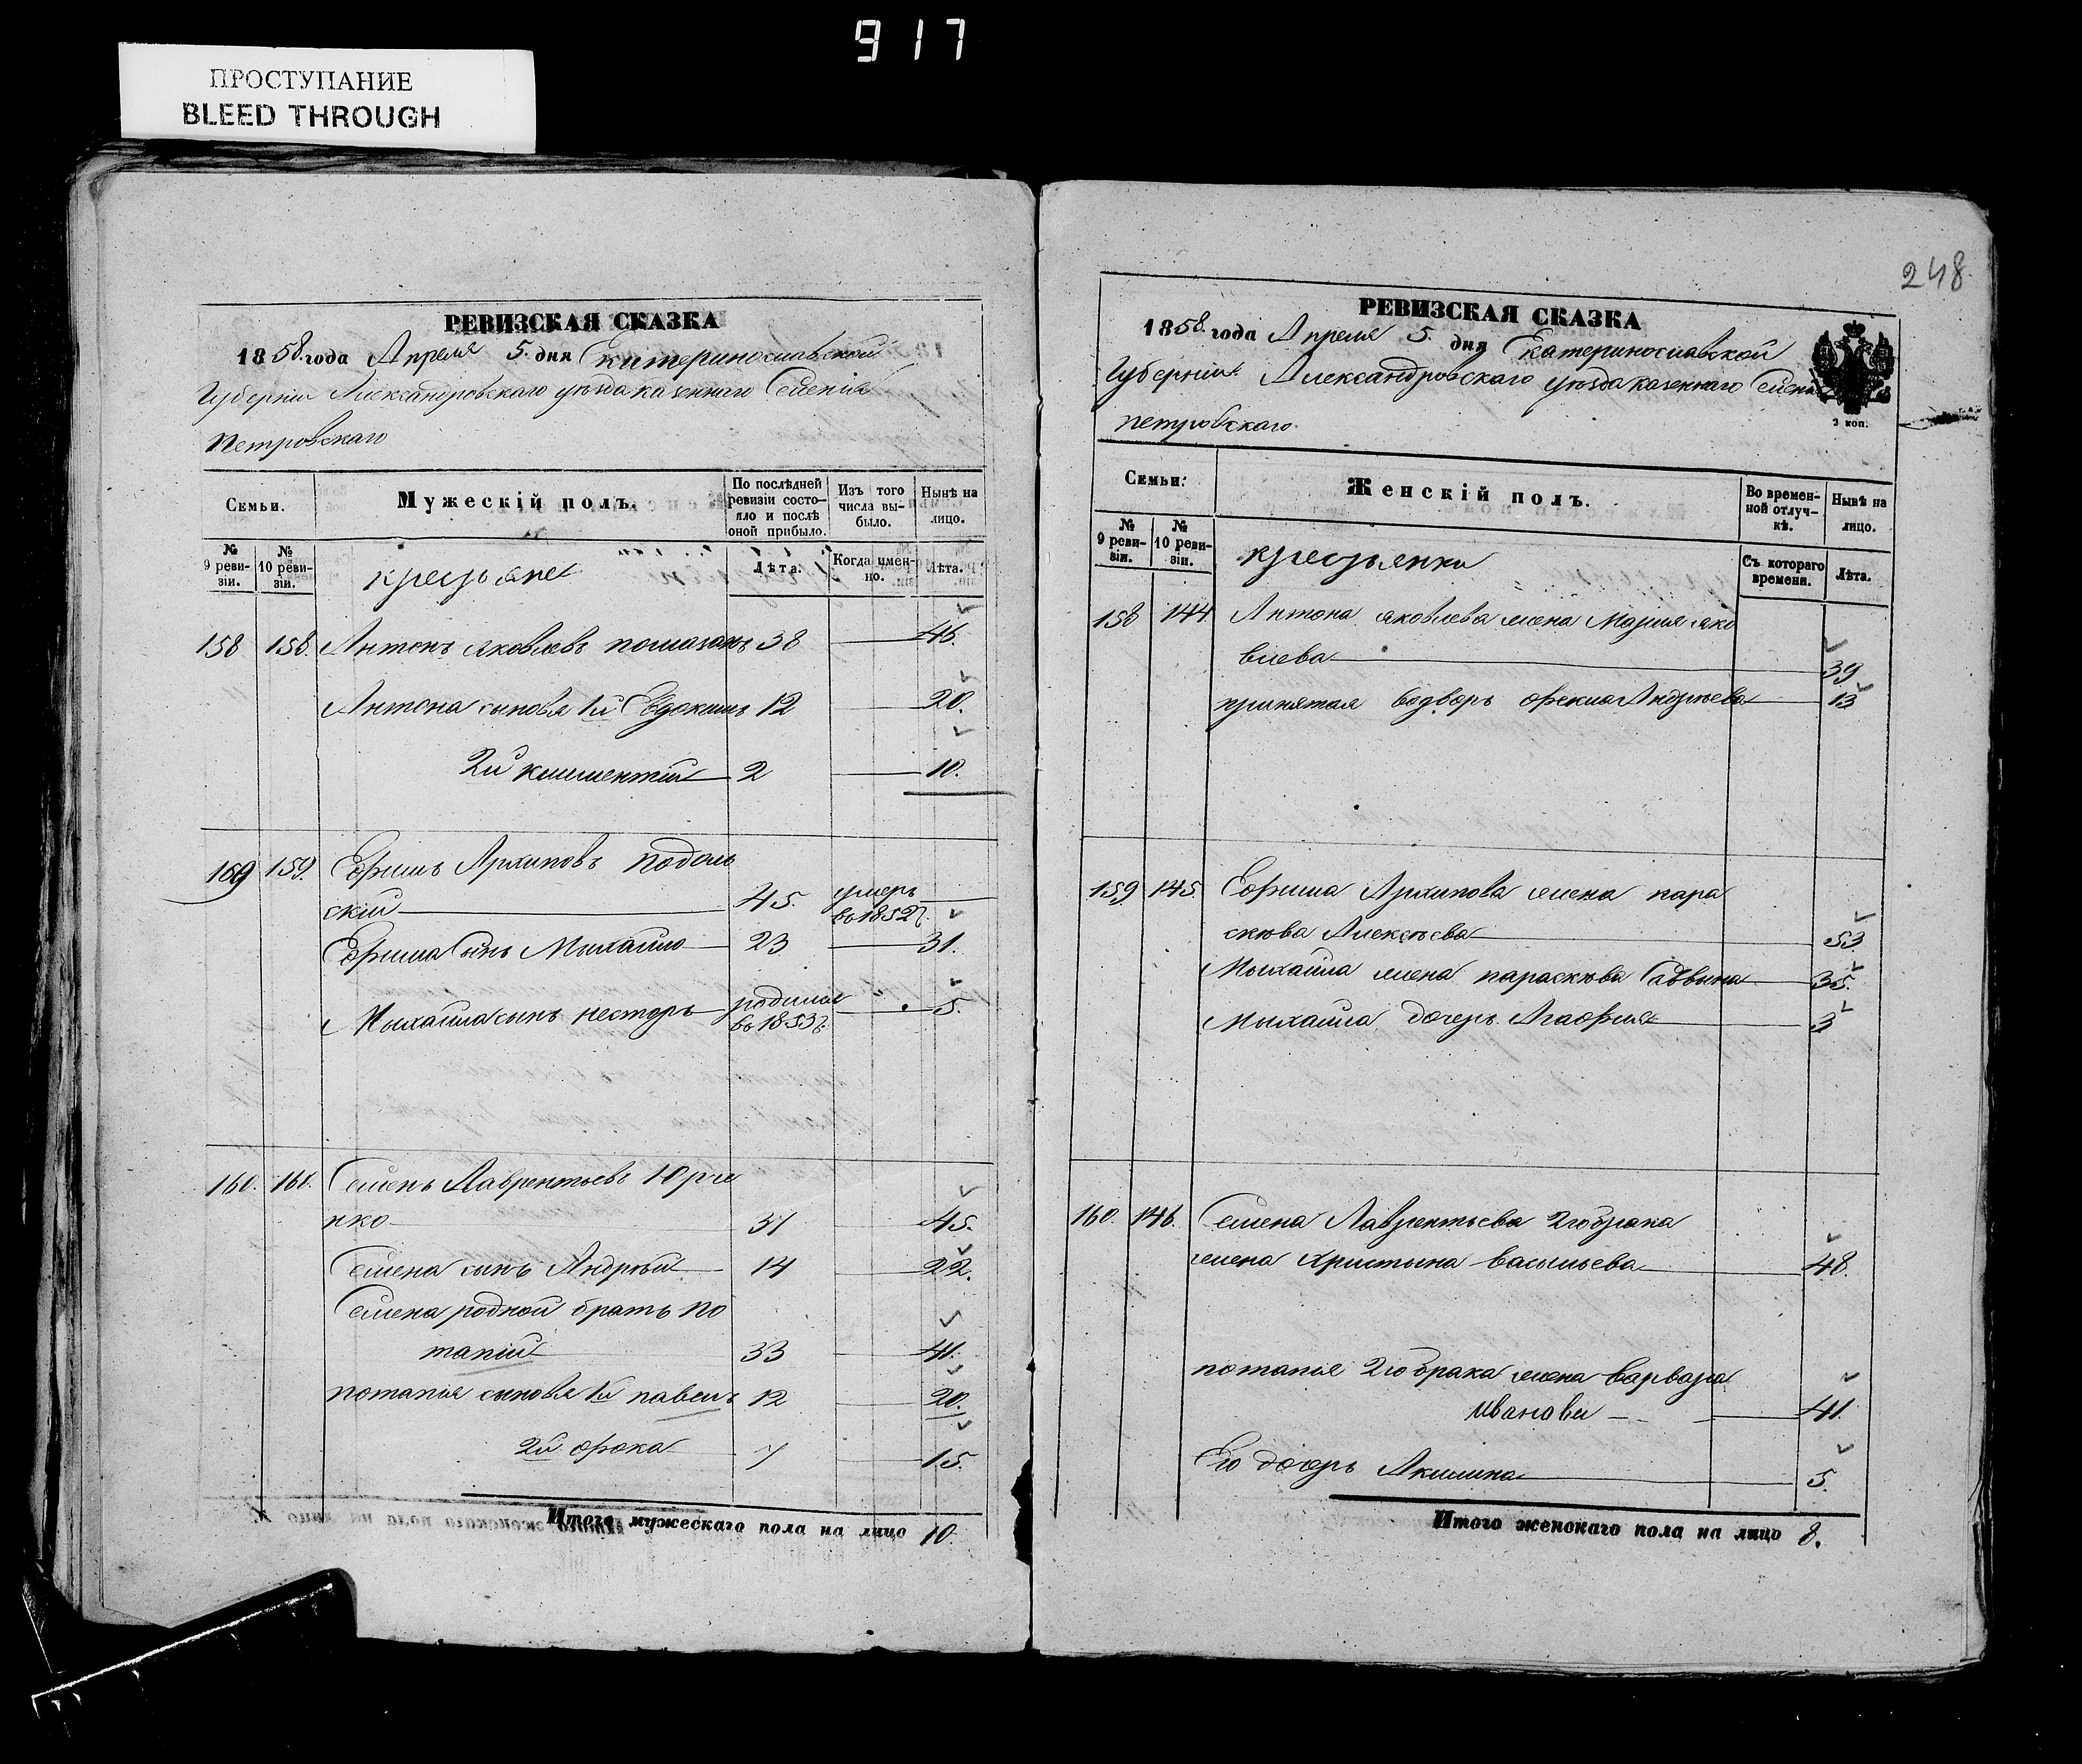 917
ПРОСТУПАНИЕ
BLEED THROUGH
РЕВИЗСКАЯ СКАЗКА
1858. года Апреля 5. дня Екатеринославской
Губернии Александровского уѣзда казенного Селенія
Петровскаго
Семьи.
Мужескій полъ.
По послѣдней ревизіи состо-яло и послѣ оной прибыло.
Изъ того числа вы-было.
Нынѣ на лицо.
№ 9 реви-зіи.
№ 10 реви-зіи.
крестьяне
Лѣта.
Когда имен-но.
Лѣта.
158 158. Антонъ Яковлевъ 38 46.
Антона сыновья 1й Евдокимъ 12 20.
2й Климентій 2 10.
169 159. Ефимъ Архиповъ Подоль
скій 45. умеръ во 1852 г.
Ефима Сынъ Михайло 23 31.
Михайла сынъ Несторъ родился во 1853 г. 5.
160. 160. Семенъ Лаврентьевъ Юрче
нко 37 45.
Семена сынъ Андрѣй 14 22.
Семена родной братъ По
тапій 33 41.
потапія сыновья 1й павелъ 12 20.
2й фока 7 15.
Итого мужескаго пола на лицо 10.
248.
РЕВИЗСКАЯ СКАЗКА
1858. года Апреля 5. дня Екатеринославской
Губерніи Александровскаго уѣзда казеннаго Селенія
петровскаго
2 коп.
Семьи.
Женскій полъ.
Во времен-ной отлуч-кѣ.
Нынѣ на лицо.
№ 9 реви-зіи.
№ 10 реви-зіи.
крестьянки
Съ котораго времени.
Лѣта.
158 144 Антона Яковлева жена Мария Яко
влева 39
принятая водворъ Андрѣева 13
159. 145. Ефима Архипова жена пара
скѣва Алексѣева 53.
Михайла жена параскѣва Саввина 35.
Михайла дочерь Агафия 3
160. 146. Семена Лаврентьева 2го брака
жена Христына васильева 48.
потапія 2го брака жена варвара
Иванова 41.
Его дочерь Акилина 5.
Итого женскаго пола на лицо 8.